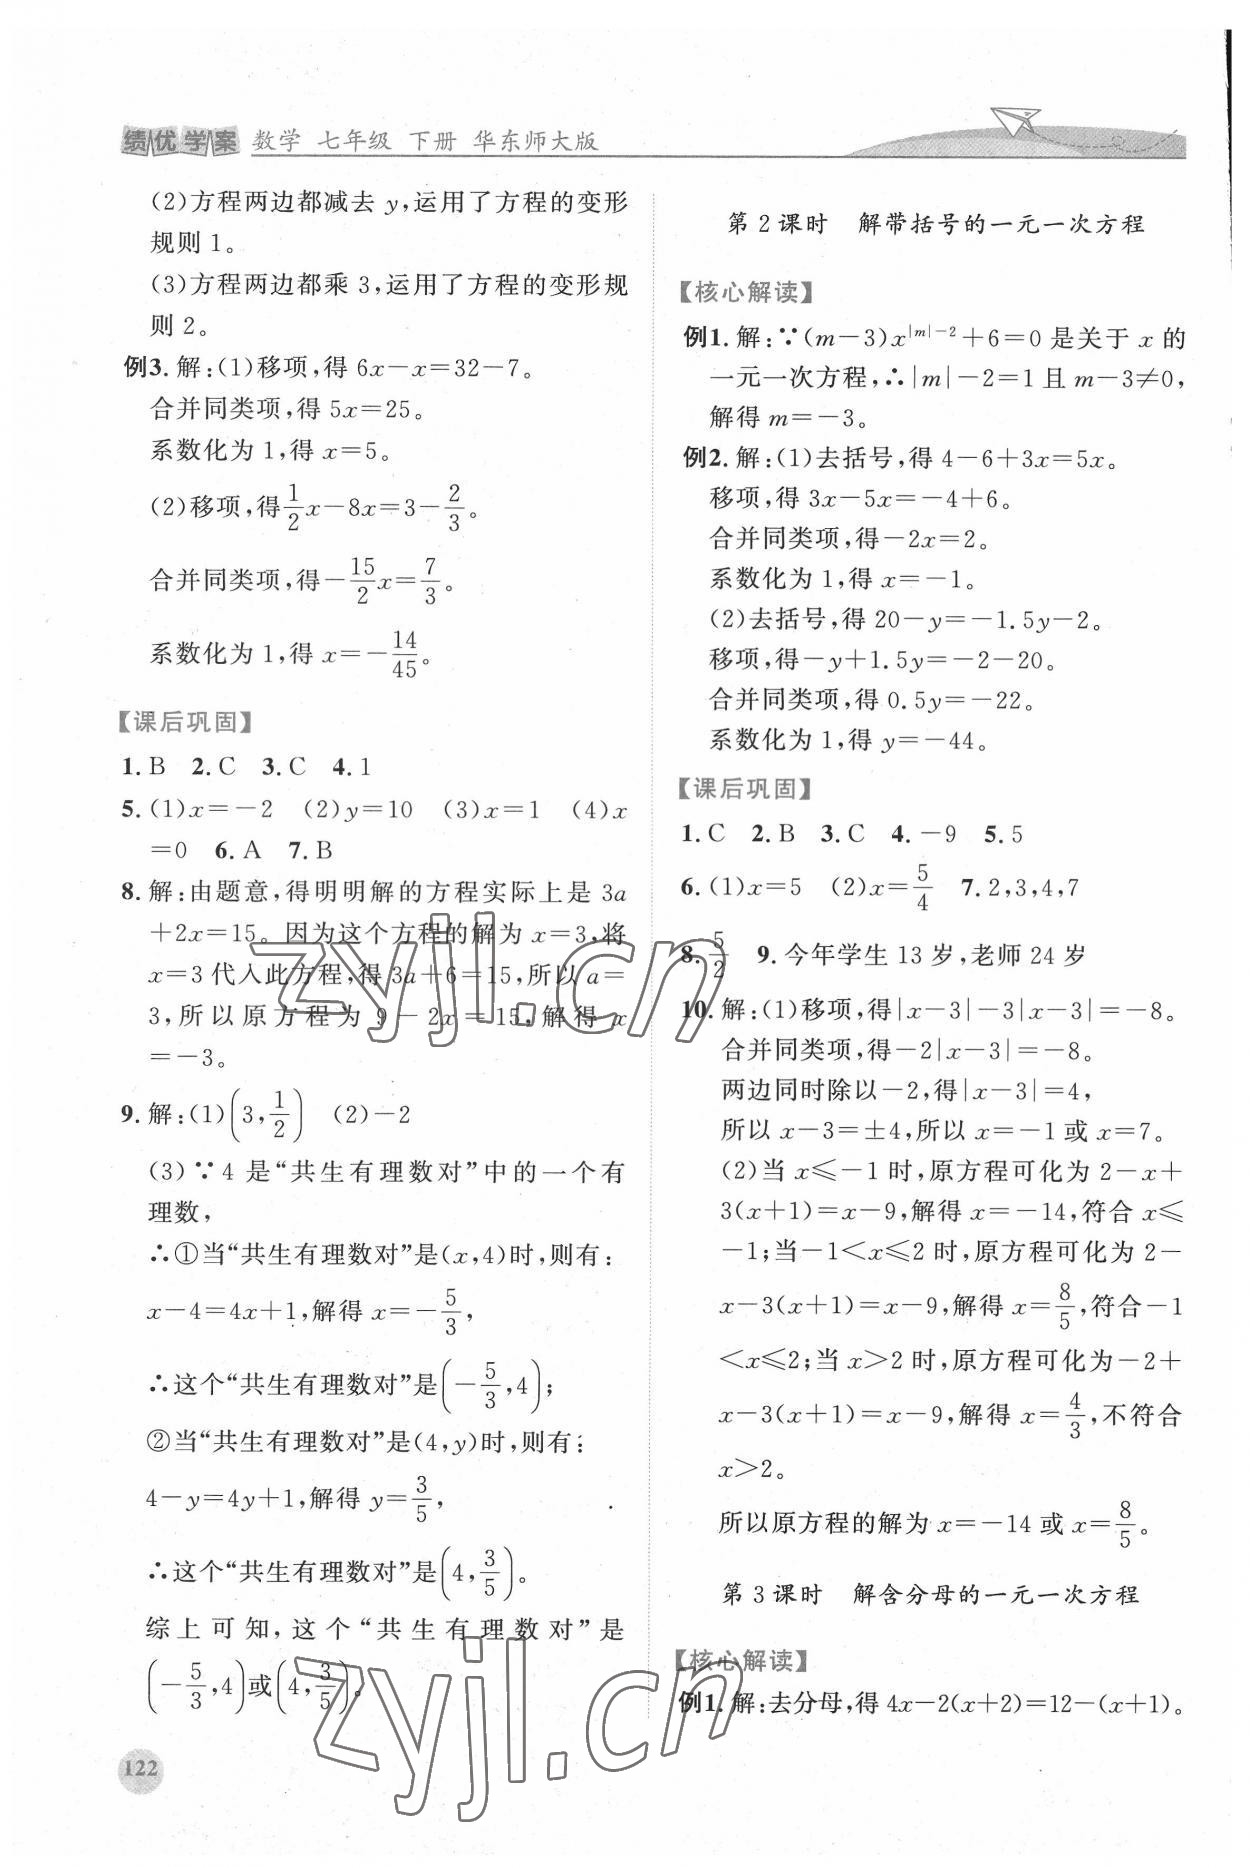 绩优学案 数学 七年级 下册 华东师大版
(2)方程两边都减去 y,运用了方程的变形
规则 1。
(3)方程两边都乘 3,运用了方程的变形规
则 2。
例3. 解:(1)移项,得 6x-x=32-7。
合并同类项,得 5x=25。
系数化为 1,得 x=5。
(2)移项,得 1/2 x-8x=3-2/3。
合并同类项,得-15/2 x=7/3。
系数化为 1,得 x=-14/45。
【课后巩固】
1. B 2. C 3. C 4. 1
5. (1)x=-2 (2)y=10 (3)x=1 (4)x
=0 6. A 7. B
8. 解:由题意,得明明解的方程实际上是 3a
+2x=15。因为这个方程的解为 x=3,将
x=3 代入此方程,得 3a+6=15,所以 a=
3,所以原方程为 9-2x=15,解得 x
=-3。
9. 解:(1)(3,1/2) (2)-2
(3)∵4 是“共生有理数对”中的一个有
理数,
∴①当“共生有理数对”是(x,4)时,则有:
x-4=4x+1,解得 x=-5/3,
∴这个“共生有理数对”是(-5/3,4);
②当“共生有理数对”是(4,y)时,则有:
4-y=4y+1,解得 y=3/5,
∴这个“共生有理数对”是(4,3/5)。
综上可知,这个“共生有理数对”是
(-5/3,4)或(4,3/5)。
122
第 2 课时 解带括号的一元一次方程
【核心解读】
例1. 解:∵(m-3)x^{|m|-2}+6=0 是关于 x 的
一元一次方程,∴|m|-2=1 且 m-3≠0,
解得 m=-3。
例2. 解:(1)去括号,得 4-6+3x=5x。
移项,得 3x-5x=-4+6。
合并同类项,得-2x=2。
系数化为 1,得 x=-1。
(2)去括号,得 20-y=-1.5y-2。
移项,得-y+1.5y=-2-20。
合并同类项,得 0.5y=-22。
系数化为 1,得 y=-44。
【课后巩固】
1. C 2. B 3. C 4. -9 5. 5
6. (1)x=5 (2)x=5/4 7. 2,3,4,7
8. 5/2 9. 今年学生 13 岁,老师 24 岁
10. 解:(1)移项,得|x-3|-3|x-3|=-8。
合并同类项,得-2|x-3|=-8。
两边同时除以-2,得|x-3|=4,
所以 x-3=±4,所以 x=-1 或 x=7。
(2)当 x≤-1 时,原方程可化为 2-x+
3(x+1)=x-9,解得 x=-14,符合 x≤
-1;当-1<x≤2 时,原方程可化为 2-
x-3(x+1)=x-9,解得 x=8/5,符合-1
<x≤2;当 x>2 时,原方程可化为-2+
x-3(x+1)=x-9,解得 x=4/3,不符合
x>2。
所以原方程的解为 x=-14 或 x=8/5。
第 3 课时 解含分母的一元一次方程
【核心解读】
例1. 解:去分母,得 4x-2(x+2)=12-(x+1)。
zyjl.cn
zyjl.cn